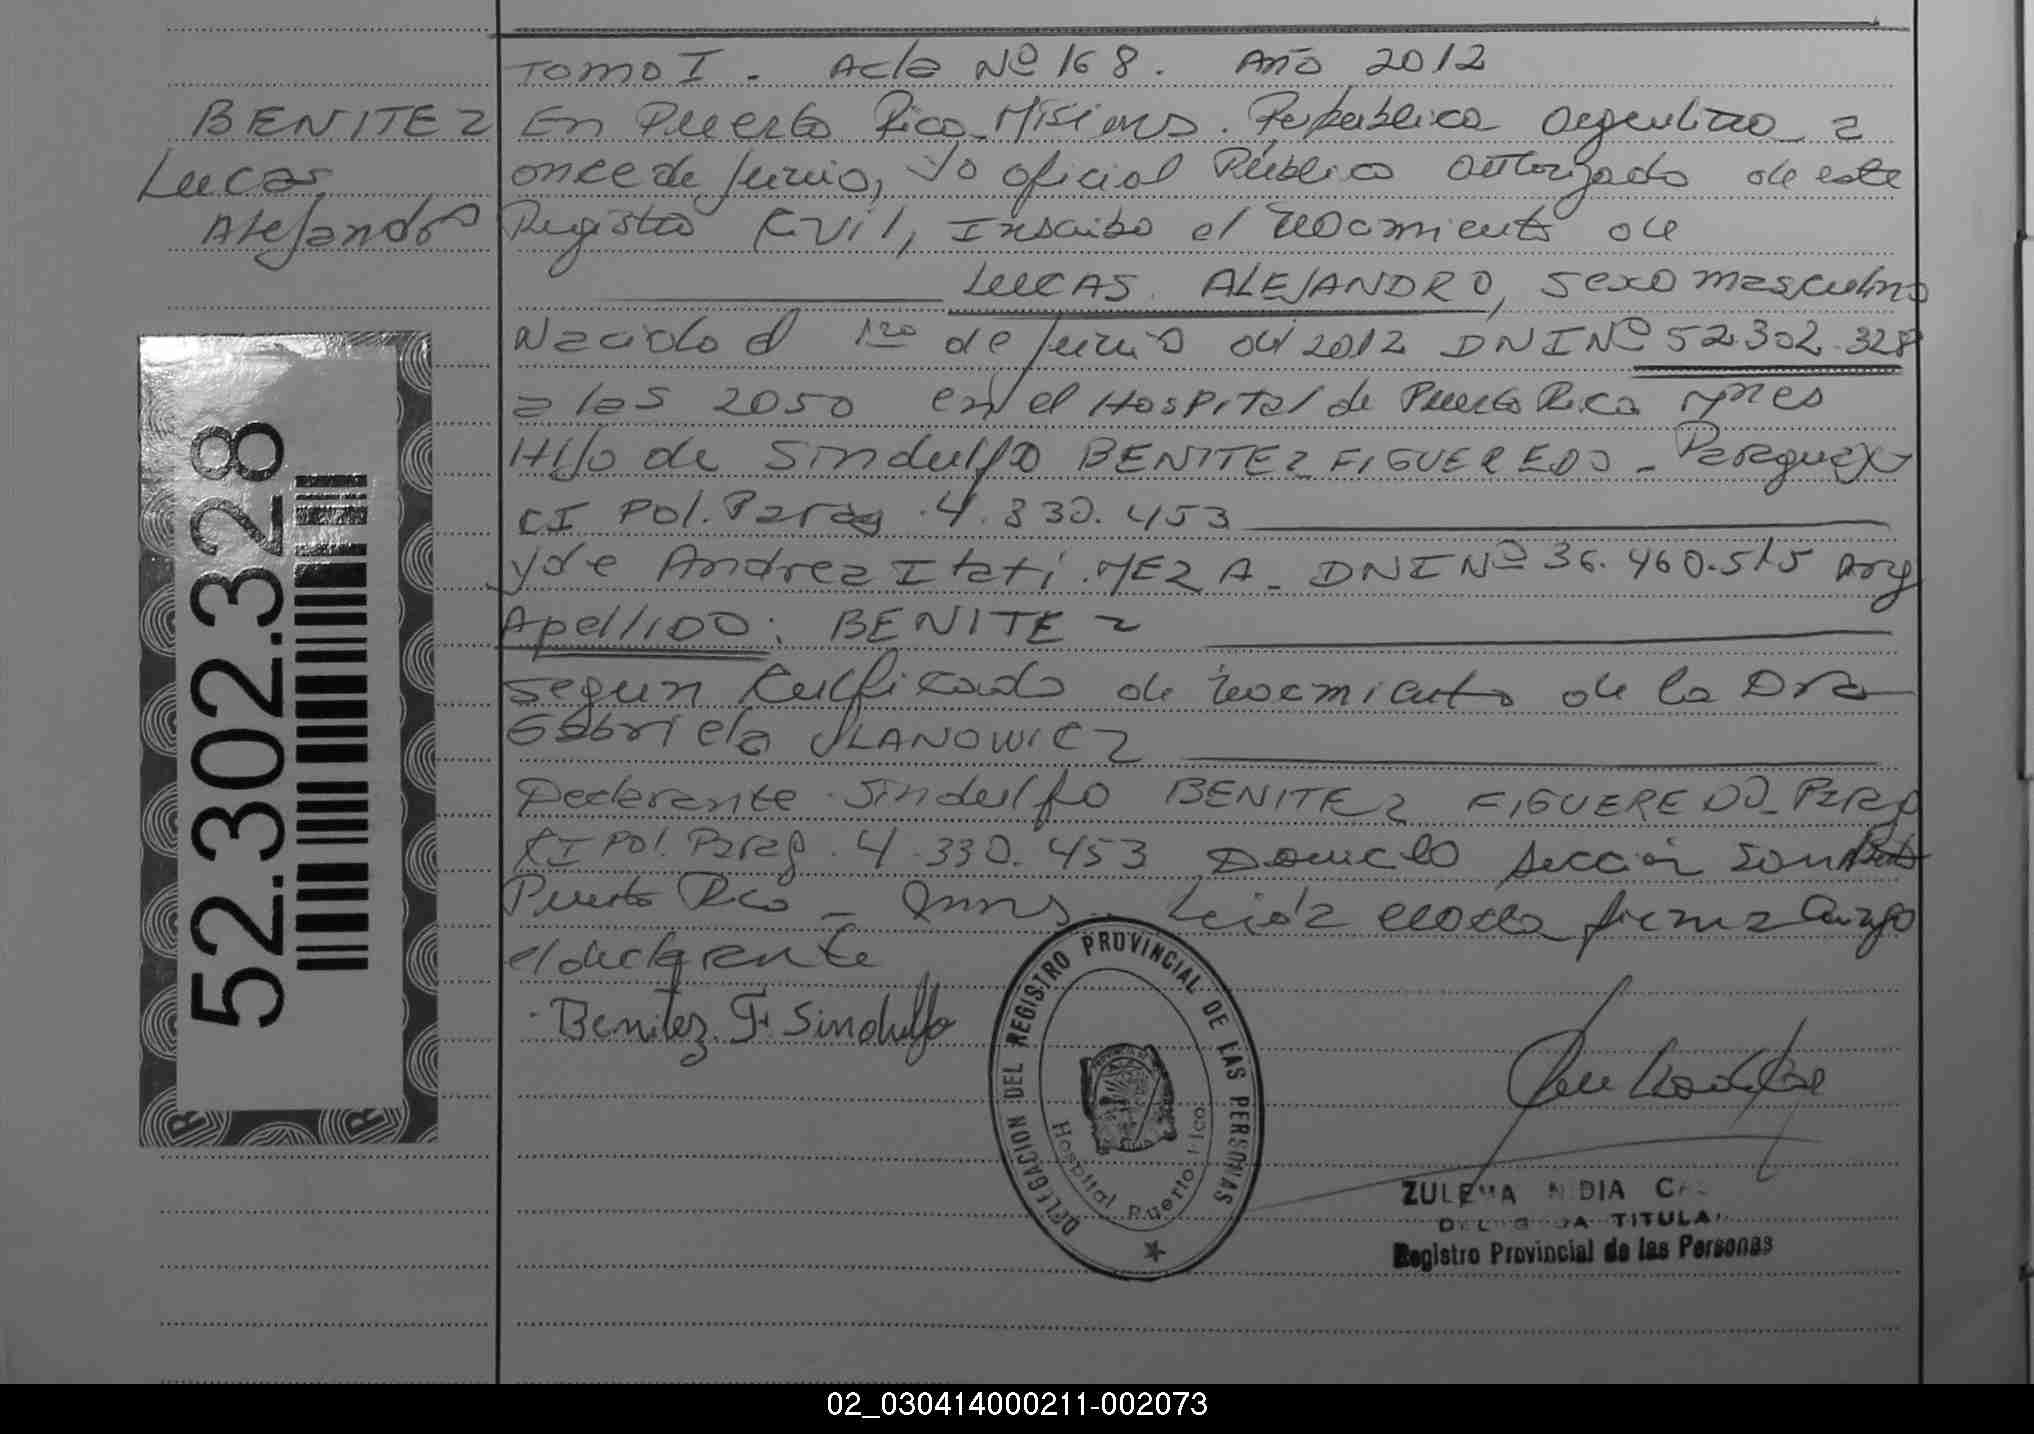 Tomo I. Acta Nº 168. Año 2012
BENITEZ
Lucas
Alejandro
En Puerto Rico_Misiones. República Argentina a
once de Junio, Yo oficial Público Autorizado de este
Registro Civil, Inscribo el nacimiento de
LUCAS. ALEJANDRO, sexo masculino
Nacido el 1ro de Junio del 2012 DNI Nº 52.302.328
a las 2050 en el Hospital de Puerto Rico
Hijo de Sindulfo BENITEZ FIGUEREDO_Paraguayo
CI Pol. Parag. 4.330.453
y de Andrea Itati MEZA_DNI Nº 36.460.515 Arg
Apellido: BENITEZ
segun Certificado de nacimiento de la Dra
Gabriela ULANOWICZ
Declarante Sindulfo BENITEZ FIGUEREDO_Parg
CI Pol. Parag. 4.330.453 Sección San
Puerto Rico_ Leida firma Conmigo
el declarante
Benitez F. Sindulfo
52.302.328
DELEGACION DEL REGISTRO PROVINCIAL DE LAS PERSONAS
Hospital Puerto Rico
ZULEMA NIDIA
TITULAR
Registro Provincial de las Personas
02_030414000211-002073